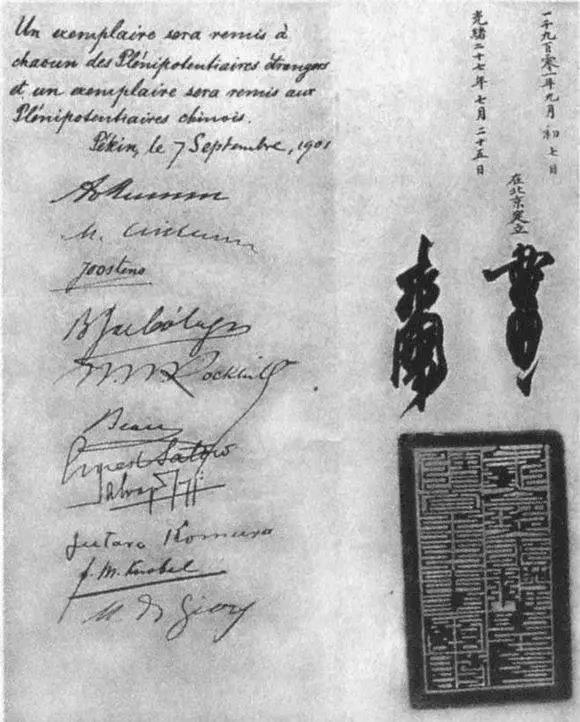 Un exemplaire sera remis à
chacun des Plénipotentiaires étrangers
et un exemplaire sera remis aux
Plénipotentiaires chinois.
Pékin, le 7 Septembre, 1901
Joostens
B J de Cólogan
W W Rockhill
Beau
Ernest Satow
Salvago Raggi
Jutaro Komura
F. M. Knobel
M de Giers
一千九百零一年九月初七日
光緒二十七年七月二十五日
在北京定立